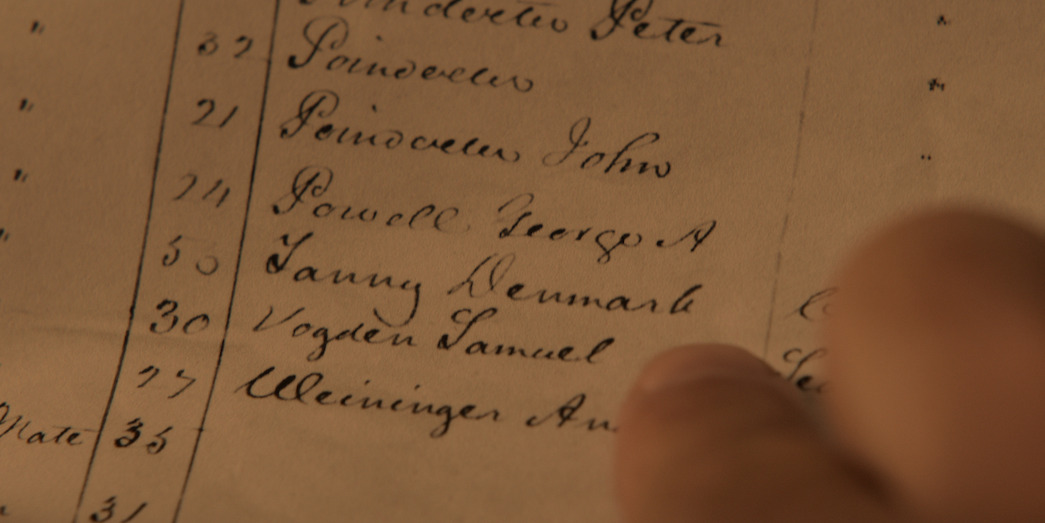 Poindexter Peter "
" 32 Poindexter "
" 21 Poindexter John "
" 24 Powell George A
" 50 Tanny Denmark
30 Vogden Samuel
27 Weininger
Mate 35
31